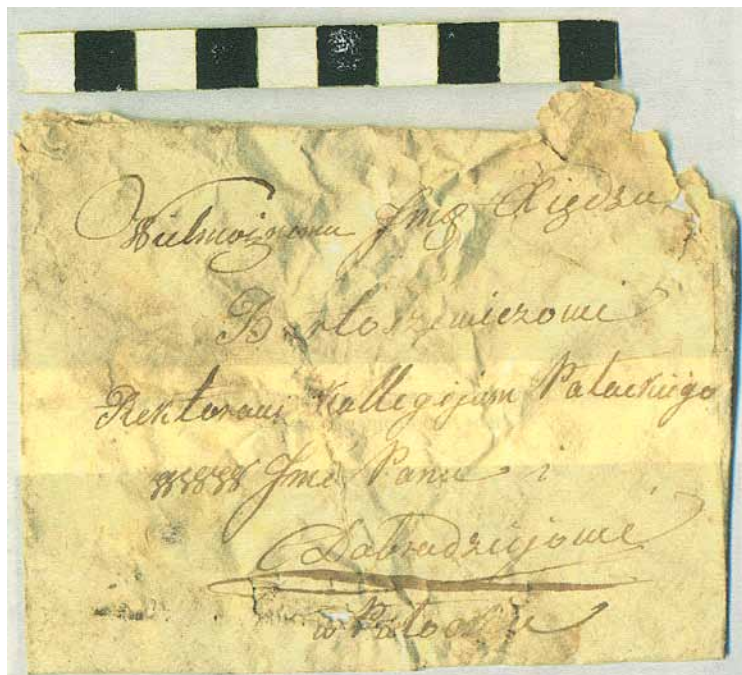 Wielmożnemu Jmć Xiędzu
Bartoszewiczowi
Rektorowi Kollegijum Połockiego
Jmć Panu i
Dobrodziejowi
w Połocku